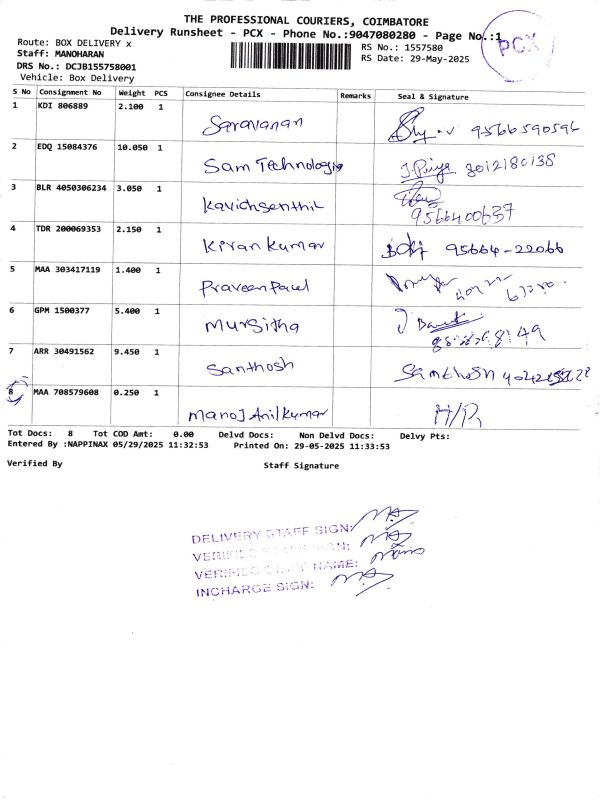 THE PROFESSIONAL COURIERS, COIMBATORE
Delivery Runsheet - PCX - Phone No.:9047080280 - Page No.:1
PCX
Route: BOX DELIVERY x
RS No.: 1557580
Staff: MANOHARAN
RS Date: 29-May-2025
DRS No.: DCJB155758001
Vehicle: Box Delivery
S No Consignment No Weight PCS Consignee Details Remarks Seal & Signature
1 KDI 806889 2.100 1 Saravanan 9566590596
2 EDQ 15084376 10.050 1 Sam Technologie J.Priya 8012180138
3 BLR 4050306234 3.050 1 Kavichsenthil 9566400637
4 TDR 200069353 2.150 1 Kiran Kumar 95664-22066
5 MAA 303417119 1.400 1 Praveen Paul
6 GPM 1500377 5.400 1 Mursitha
7 ARR 30491562 9.450 1 Santhosh Santhosh
8 MAA 708579608 0.250 1 Manoj Anilkumar H/R
Tot Docs: 8 Tot COD Amt: 0.00 Delvd Docs: Non Delvd Docs: Delvy Pts:
Entered By :NAPPINAX 05/29/2025 11:32:53 Printed On: 29-05-2025 11:33:53
Verified By Staff Signature
DELIVERY STAFF SIGN:
VERIFIED STAFF SIGN:
VERIFIED STAFF NAME:
INCHARGE SIGN: